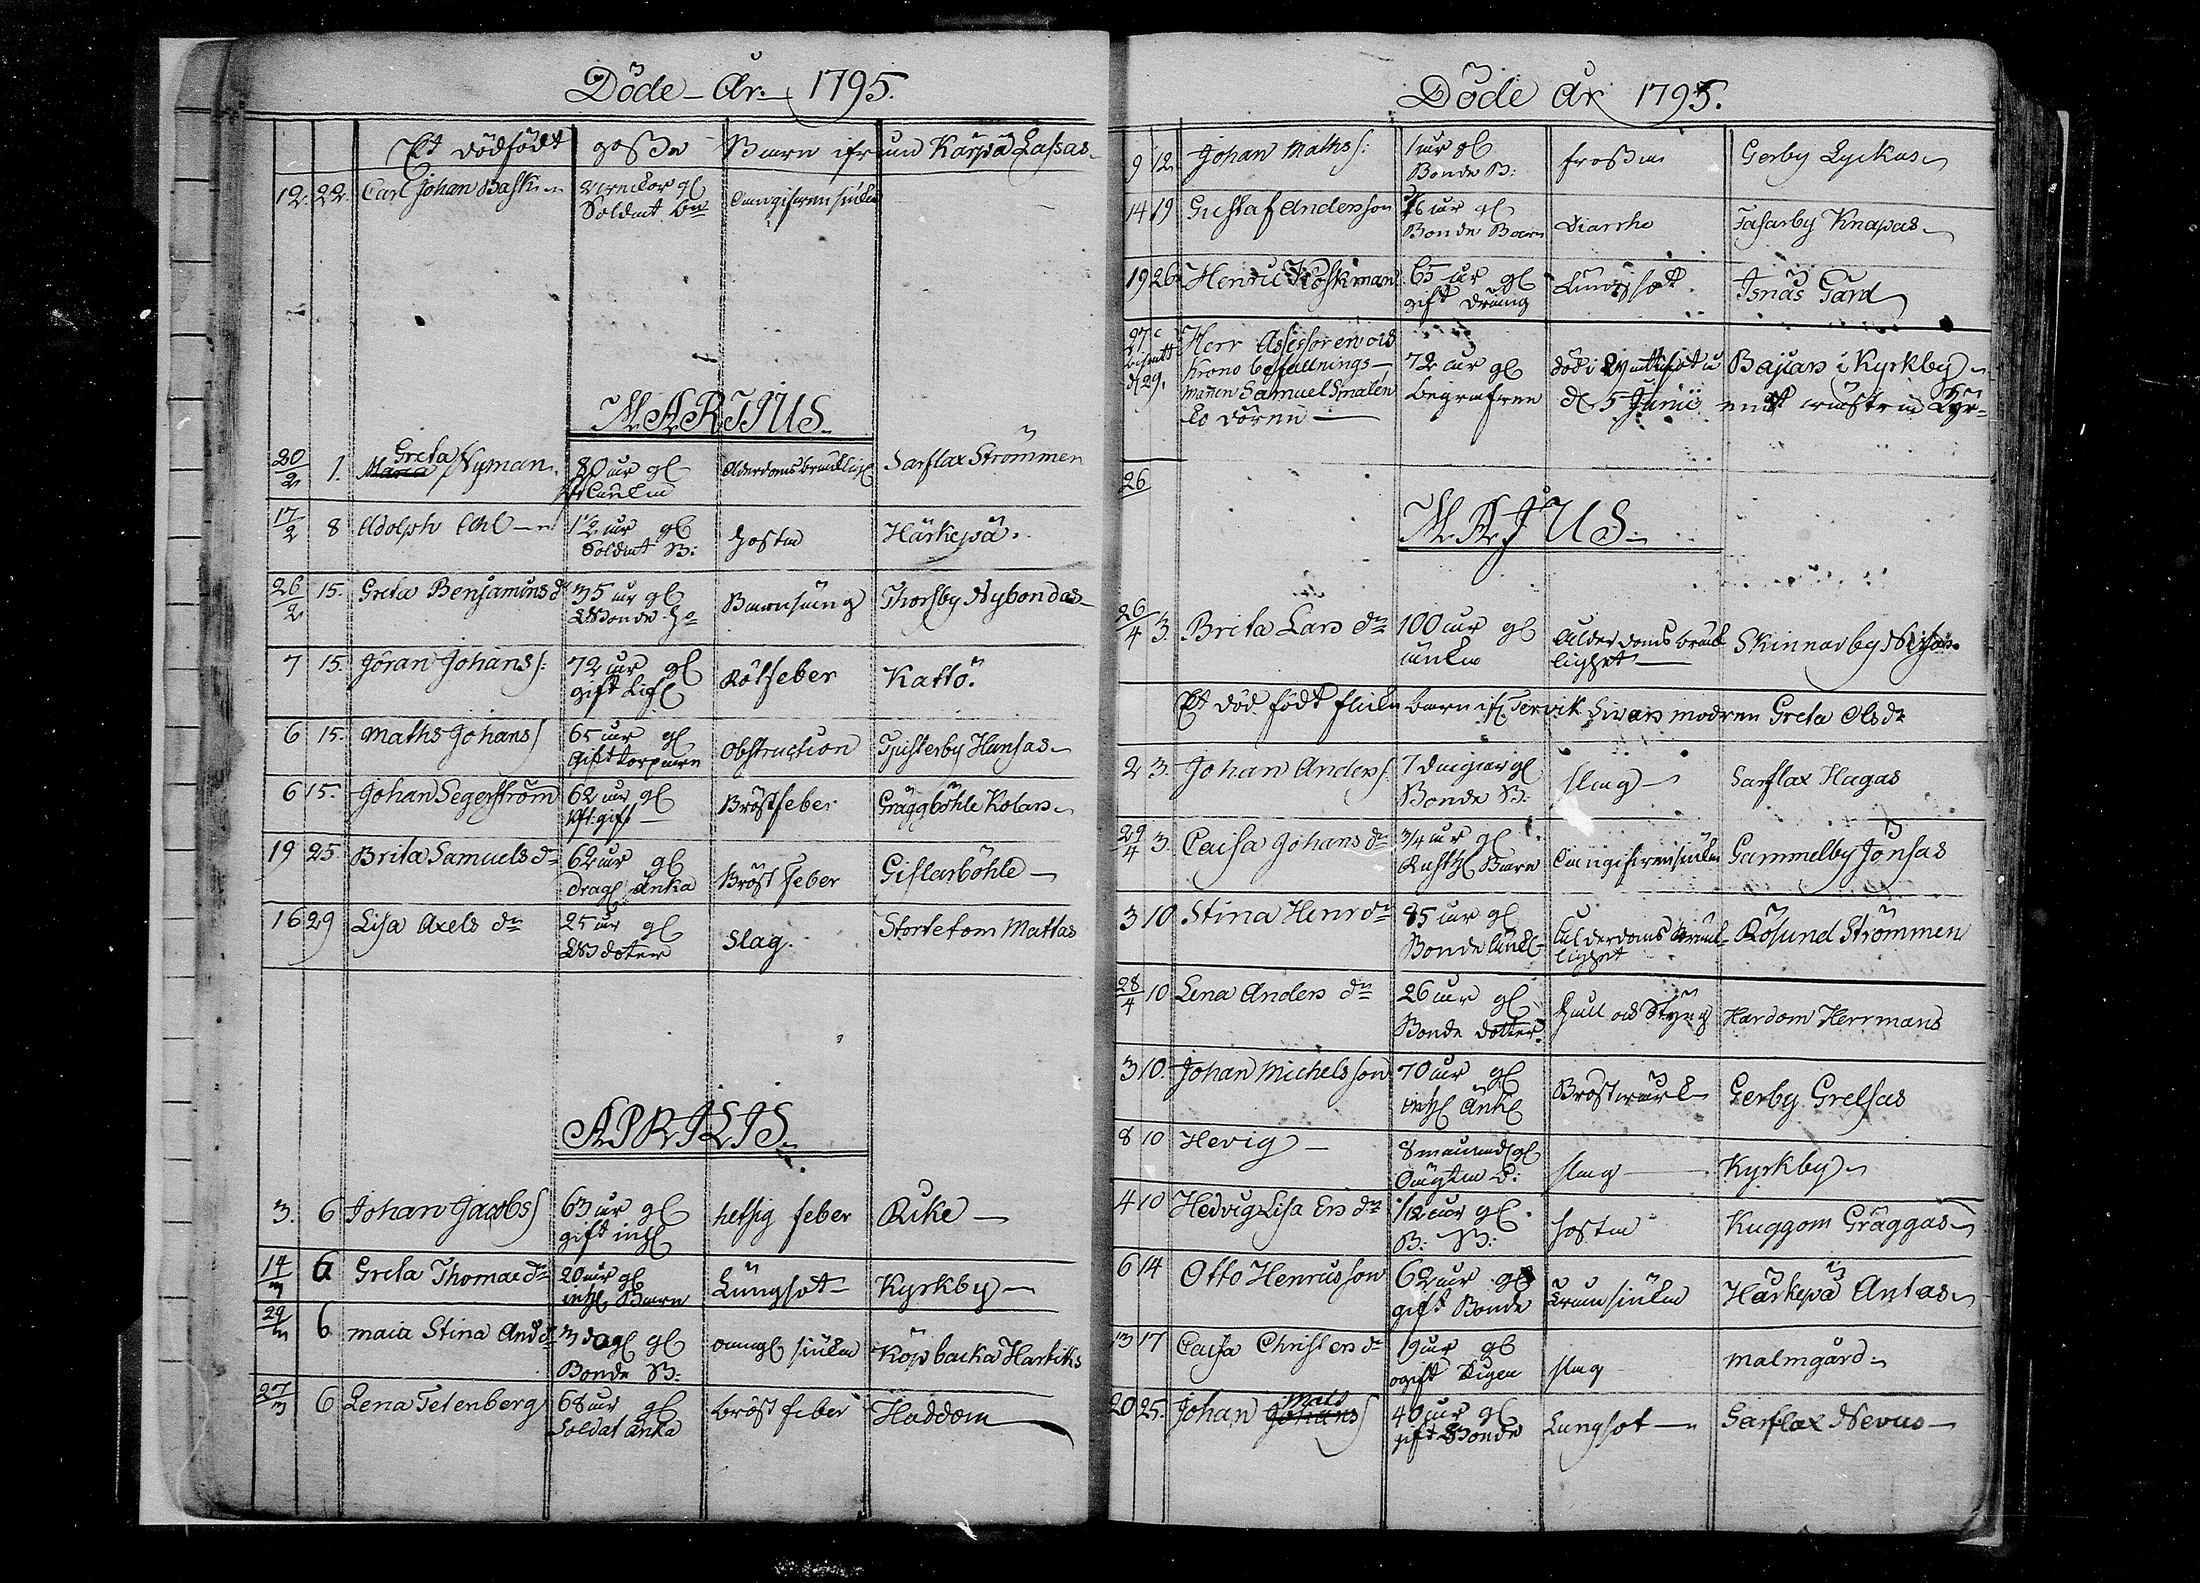 Döde År 1795.
Et dödfödt gosse Barn ifrån Kärpä Lassas
12. 22. Carl Johan Bask
veckor gl
Soldat
1. Greta Nyman
80 år gl
Ålderdoms bräckligh
Sarflax Strömmen
MARTIUS
20/2
17/2 8 Adolph
1/2 år gl
Soldat B:
hosta
Härkepä
26/2 15. Greta Benjamins dr
35 år gl
Bonde H
Barnsäng
Thorsby Nybondas
7 15. Jöran Johans s:
72 år gl
gift
Rötfeber
Kattö.
6 15. Maths Johans s
65 år gl
Gift torpare
Obstruction
Tjusterby Hansas
6 15. Johan Segerström
62 år gl
gift
Bröstfeber
Gräggböhle Kolars
19 25. Brita Samuels dr
62 år gl
drag Änka
Bröst feber
Gislarböhle
16 29 Lisa Axels dr
25 år gl
doter
Slag.
Stortetom Mattas
APRILIS
3. 6 Johan Jacobs s
63 år gl
gift inh
hetsig feber
Rike
14/3 6 Greta Thomae dr
20 år gl
inh Barn
Lungsot
Kyrkby
29/3 6 Maia Stina And dr
3 dag gl
Bonde B:
Köpbacka Hartiks
27/3 6 Lena Tetenberg
68 år gl
Soldat änka
bröst feber
Haddom
Döde År 1795.
9 12 Johan Maths s:
1 år gl
Bonde B:
frossa
Gerby Lyckas
14 19 Gustaf Anderson
år gl
Bonde Barn
Diarrhe
Tasarby Knapas
19 26 Henric Koskman
65 år gl
gift dräng
Lungsot
Isnäs Gård
27
d 29.
Herr Assessoren och
Krono befallnings
mannen Samuel Smalen
72 år gl
begrafven
död i
d 5 Junii
Bajars i Kyrkby
26
MAJUS
26/4 3. Brita Lars dr
100 år gl
änka
Ålderdoms bräck
lighet
Skinnarby
Et död födt flicke barn ifr Tervik Sivars modren Greta Ols dr
2 3. Johan Anders s:
7 dagar gl
Bonde B:
slag
Sarflax Hagas
29/4 3 Caisa Johans dr
3/4 år gl
Barn
Gammelby Jönsas
3 10 Stina Henr dr
85 år gl
Bonde änk
Ålderdoms bräck
lighet
Rösund Strömmen
28/4 10 Lena Anders dr
26 år gl
Bonde dotter.
håll och styng
Hardom Herrmans
3 10. Johan Michelsson
70 år gl
inh Änk
Bröstvärk
Gerby Grelsas
8 10 Hevig
8 månad gl
slag
Kyrkby
4 10 Hedvig Lisa Ers dr
1/12 år gl
B: B:
hosta
Kuggom Gräggas
6 14 Otto Henricsson
62 år gl
gift Bonde
Härkepä Antas
13 17 Caisa Christers dr
19 år gl
ogift Pigan
slag
Malmgård
20 25. Johan Mats s
40 år gl
gift Bonde
Lungsot
Sarflax Nevus